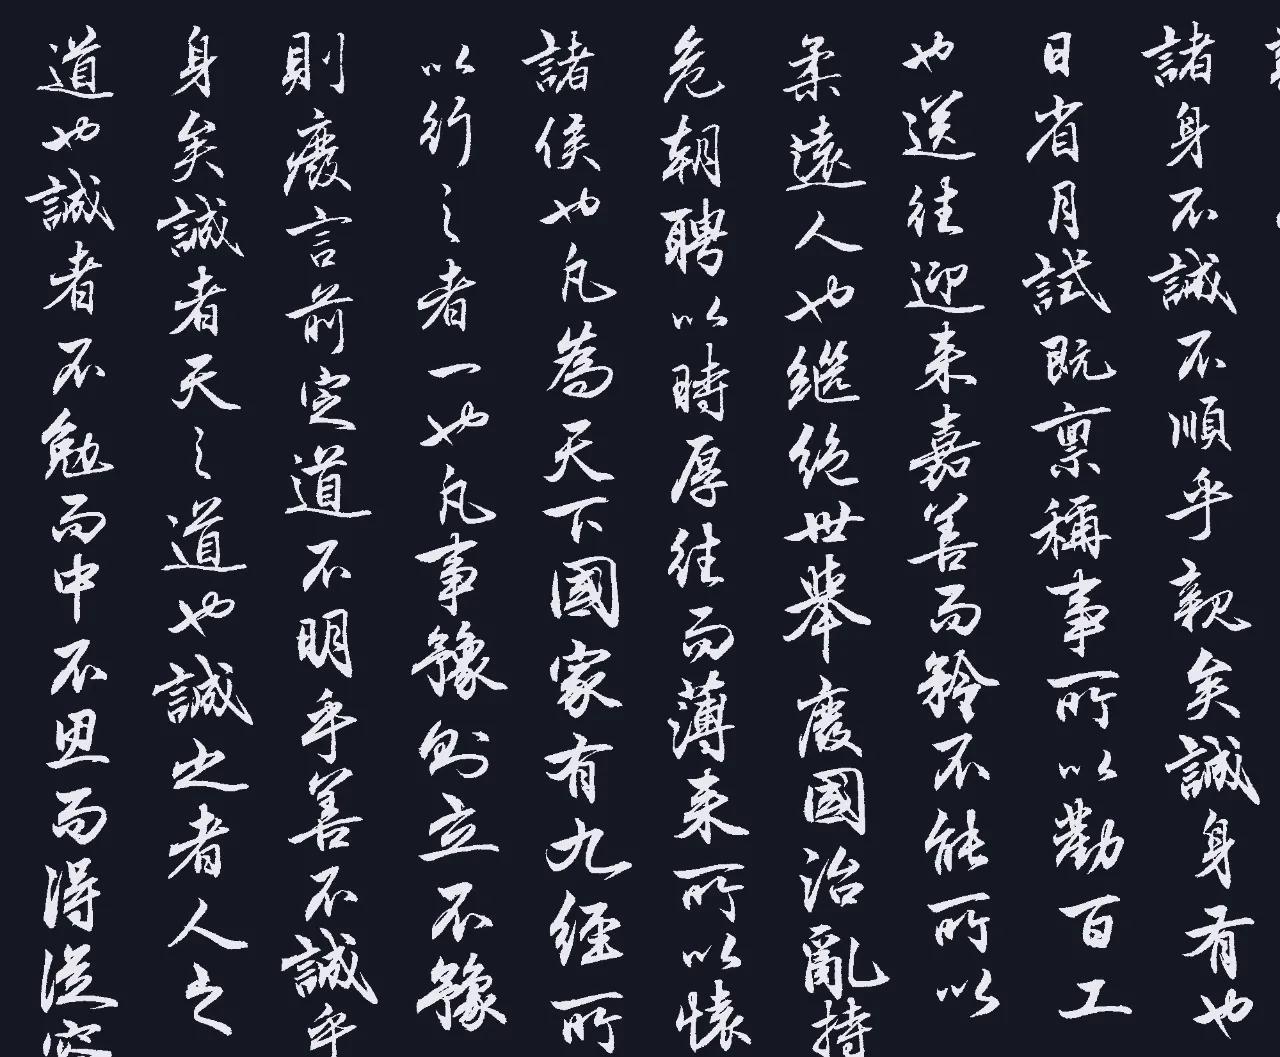 諸身不誠不順乎親矣誠身有也
日省月試既禀稱事所以勸百工
也送往迎来嘉善而矜不能所以
柔遠人也継絶世舉廢國治亂持
危朝聘以時厚往而薄来所以懐
諸侯也凡為天下國家有九經所
以行之者一也凡事豫則立不豫
則廢言前定道不明乎善不誠乎
身矣誠者天之道也誠之者人之
道也誠者不勉而中不思而得從容